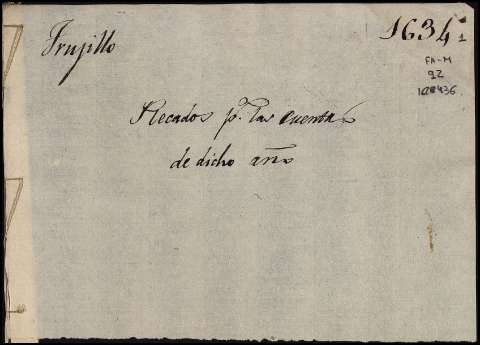 Trujillo
1634.
1
FA-M
92
Recados p.ª las cuentas
de dicho año